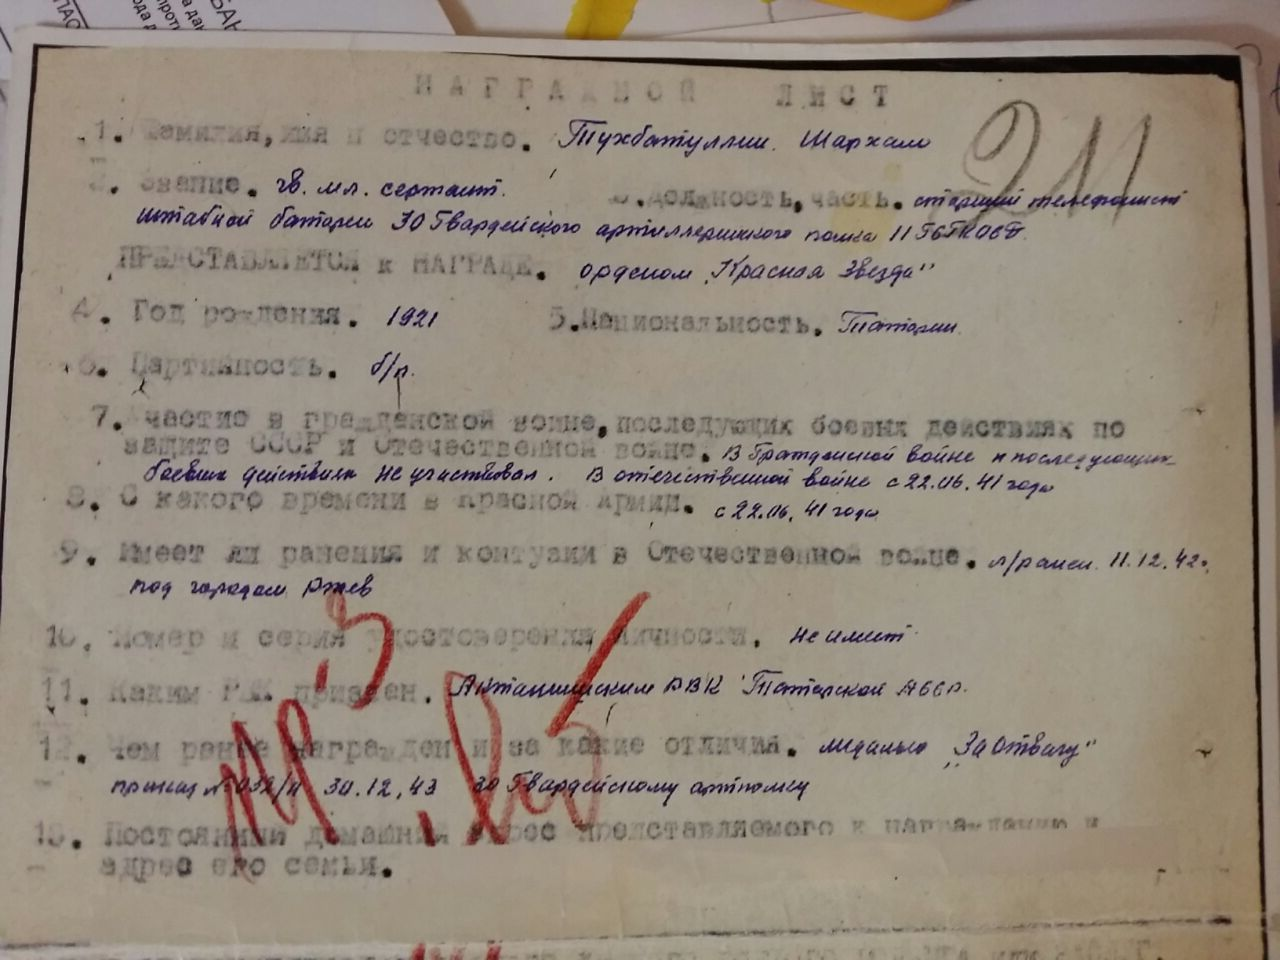 НАГРАДНОЙ ЛИСТ
211
1. Фамилия, имя и отчество. Тухбатуллин Шархам
2. Звание. гв. мл. сержант. 3. Должность, часть. старший телефонист
штабной батареи 30 Гвардейского артиллерийского полка
ПРЕДСТАВЛЯЕТСЯ к НАГРАДЕ. орденом „Красная Звезда"
4. Год рождения. 1921 5. Национальность. Татарин
6. Партийность. б/п.
7. Участие в гражданской войне, последующих боевых действиях по
защите СССР и Отечественной войне. В Гражданской войне и последующих
боевых действиях не участвовал. В отечественной войне с 22.06.41 года
8. С какого времени в Красной Армии. с 22.06.41 года
9. Имеет ли ранения и контузии в Отечественной войне. л/ранен. 11.12.42г.
под городом Ржев
10. Номер и серия удостоверения личности. Не имеет
11. Каким РВК призван. Актанышским РВК Татарской АССР.
12. Чем ранее награжден и за какие отличия. медалью „За Отвагу"
приказ № 032/н 30.12.43 30 Гвардейскому артполку
13. Постоянный домашний адрес представляемого к награждению и
адрес его семьи.